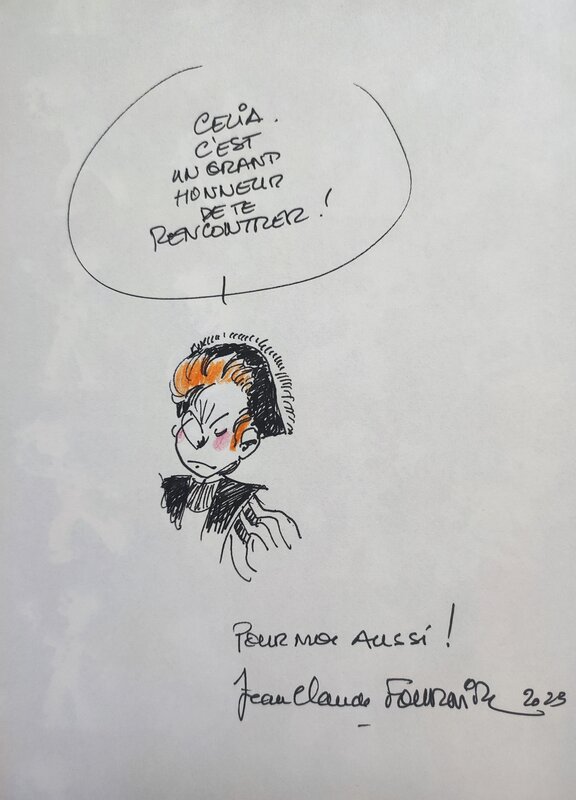 CELIA.
C'EST
UN GRAND
HONNEUR
DE TE
RENCONTRER !
POUR MOI AUSSI !
Jean Claude FOURNIER 2023